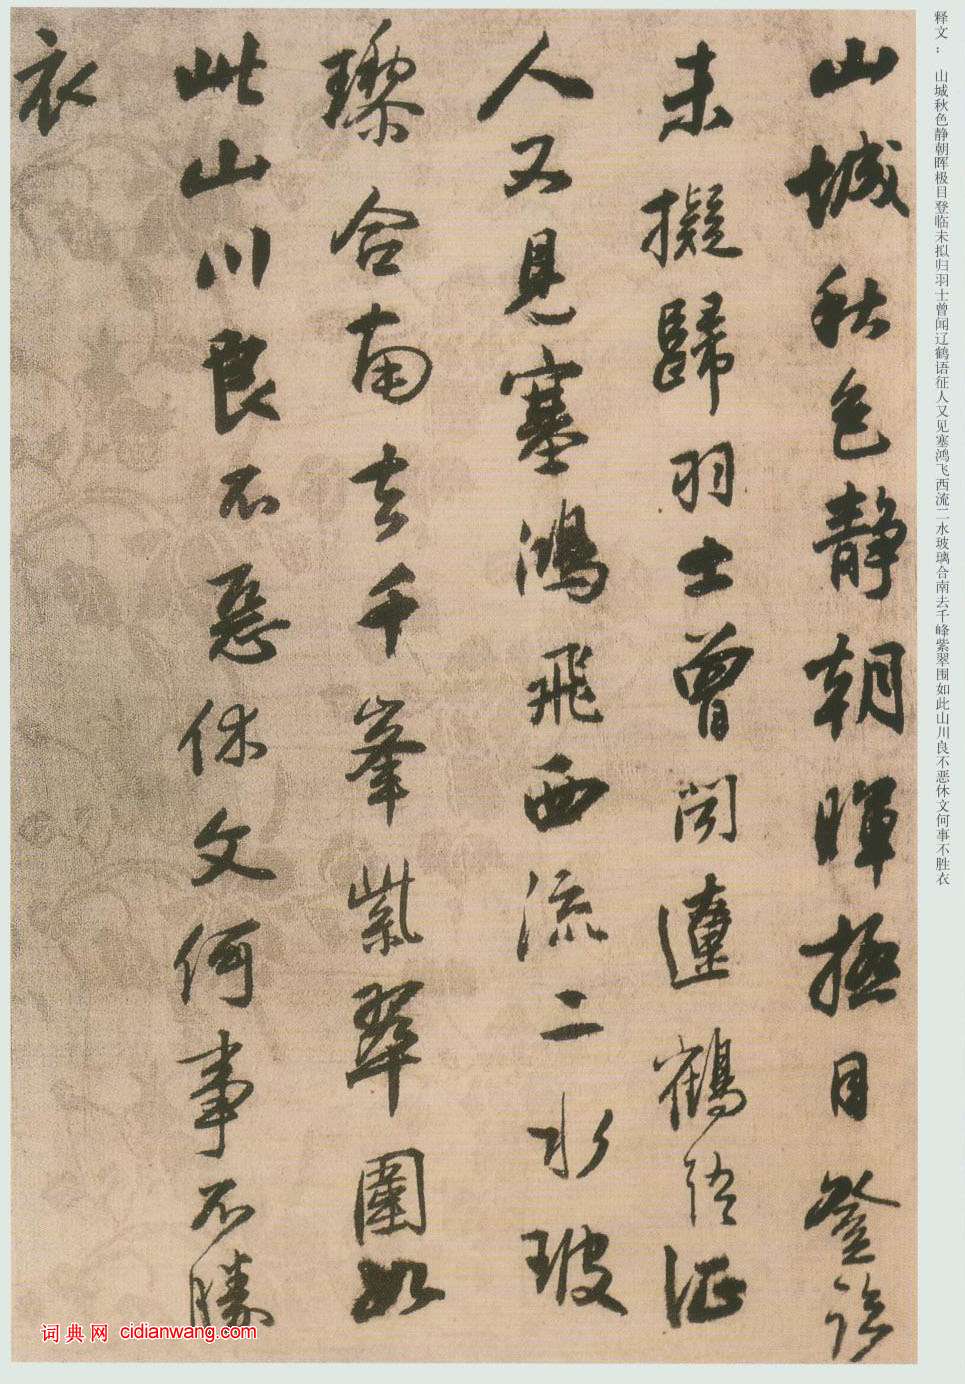 释文： 山城秋色静朝晖极目登临未拟归羽士曾闻辽鹤语征人又见塞鸿飞西流二水玻璃合南去千峰紫翠围如此山川良不恶休文何事不胜衣
山城秋色靜朝暉極目登臨
未擬歸羽士曾聞遼鶴語征
人又見塞鴻飛西流二水玻
瓈合南去千峯紫翠圍如
此山川良不惡休文何事不勝
衣
词典网 cidianwang.com